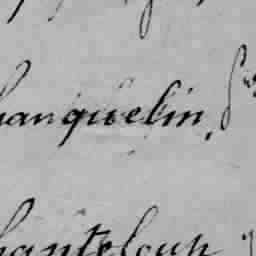 hanquelin,
hanteloup